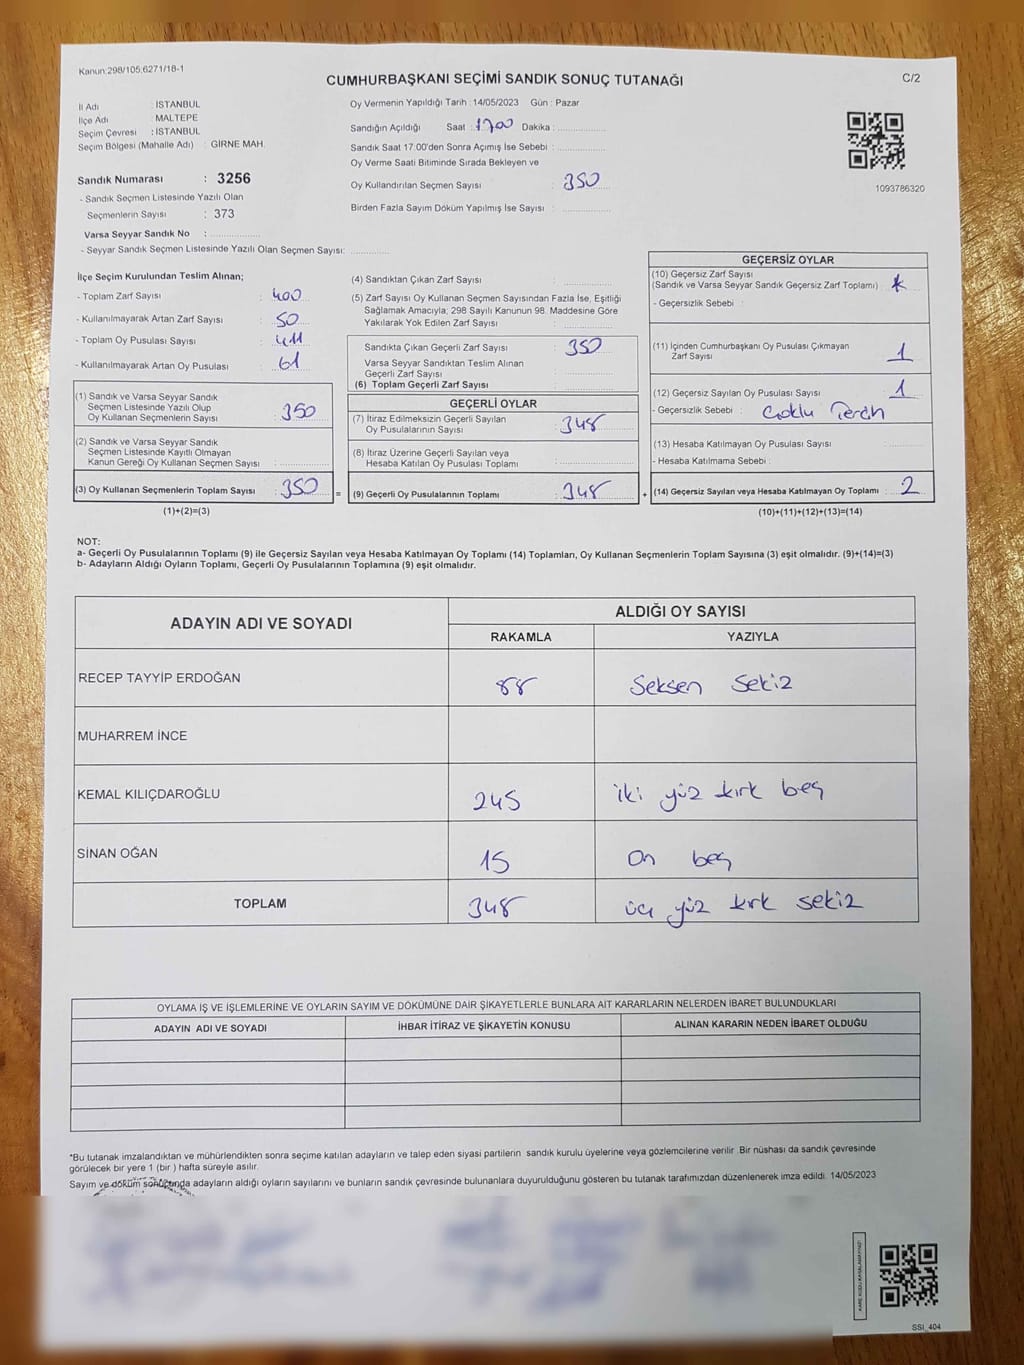 Kanun:298/105;6271/18-1
CUMHURBAŞKANI SEÇİMİ SANDIK SONUÇ TUTANAĞI
C/2
İl Adı : İSTANBUL
İlçe Adı : MALTEPE
Seçim Çevresi : İSTANBUL
Seçim Bölgesi (Mahalle Adı) : GİRNE MAH.
Sandık Numarası : 3256
- Sandık Seçmen Listesinde Yazılı Olan
Seçmenlerin Sayısı : 373
Varsa Seyyar Sandık No :
- Seyyar Sandık Seçmen Listesinde Yazılı Olan Seçmen Sayısı:
Oy Vermenin Yapıldığı Tarih : 14/05/2023 Gün : Pazar
Sandığın Açıldığı Saat : 1700 Dakika :
Sandık Saat 17.00'den Sonra Açılmış İse Sebebi :
Oy Verme Saati Bitiminde Sırada Bekleyen ve
Oy Kullandırılan Seçmen Sayısı : 350
Birden Fazla Sayım Döküm Yapılmış İse Sayısı :
1093786320
İlçe Seçim Kurulundan Teslim Alınan;
- Toplam Zarf Sayısı : 400
- Kullanılmayarak Artan Zarf Sayısı : 50
- Toplam Oy Pusulası Sayısı : 411
- Kullanılmayarak Artan Oy Pusulası : 61
(1) Sandık ve Varsa Seyyar Sandık
Seçmen Listesinde Yazılı Olup
Oy Kullanan Seçmenlerin Sayısı : 350
(2) Sandık ve Varsa Seyyar Sandık
Seçmen Listesinde Kayıtlı Olmayan
Kanun Gereği Oy Kullanan Seçmen Sayısı :
(3) Oy Kullanan Seçmenlerin Toplam Sayısı : 350
(1)+(2)=(3)
=
(4) Sandıktan Çıkan Zarf Sayısı :
(5) Zarf Sayısı Oy Kullanan Seçmen Sayısından Fazla İse, Eşitliği
Sağlamak Amacıyla; 298 Sayılı Kanunun 98. Maddesine Göre
Yakılarak Yok Edilen Zarf Sayısı :
Sandıkta Çıkan Geçerli Zarf Sayısı : 350
Varsa Seyyar Sandıktan Teslim Alınan
Geçerli Zarf Sayısı :
(6) Toplam Geçerli Zarf Sayısı :
GEÇERLİ OYLAR
(7) İtiraz Edilmeksizin Geçerli Sayılan
Oy Pusulalarının Sayısı : 348
(8) İtiraz Üzerine Geçerli Sayılan veya
Hesaba Katılan Oy Pusulası Toplamı :
(9) Geçerli Oy Pusulalarının Toplamı : 348
+
GEÇERSİZ OYLAR
(10) Geçersiz Zarf Sayısı
(Sandık ve Varsa Seyyar Sandık Geçersiz Zarf Toplamı) :
- Geçersizlik Sebebi :
(11) İçinden Cumhurbaşkanı Oy Pusulası Çıkmayan
Zarf Sayısı : 1
(12) Geçersiz Sayılan Oy Pusulası Sayısı : 1
- Geçersizlik Sebebi : Çoklu Tercih
(13) Hesaba Katılmayan Oy Pusulası Sayısı :
- Hesaba Katılmama Sebebi :
(14) Geçersiz Sayılan veya Hesaba Katılmayan Oy Toplamı : 2
(10)+(11)+(12)+(13)=(14)
NOT:
a- Geçerli Oy Pusulalarının Toplamı (9) ile Geçersiz Sayılan veya Hesaba Katılmayan Oy Toplamı (14) Toplamları, Oy Kullanan Seçmenlerin Toplam Sayısına (3) eşit olmalıdır. (9)+(14)=(3)
b- Adayların Aldığı Oyların Toplamı, Geçerli Oy Pusulalarının Toplamına (9) eşit olmalıdır.
ADAYIN ADI VE SOYADI
ALDIĞI OY SAYISI
RAKAMLA YAZIYLA
RECEP TAYYİP ERDOĞAN 88 Seksen Sekiz
MUHARREM İNCE
KEMAL KILIÇDAROĞLU 245 iki yüz kırk beş
SİNAN OĞAN 15 On beş
TOPLAM 348 üç yüz kırk sekiz
OYLAMA İŞ VE İŞLEMLERİNE VE OYLARIN SAYIM VE DÖKÜMÜNE DAİR ŞİKAYETLERLE BUNLARA AİT KARARLARIN NELERDEN İBARET BULUNDUKLARI
ADAYIN ADI VE SOYADI İHBAR İTİRAZ VE ŞİKAYETİN KONUSU ALINAN KARARIN NEDEN İBARET OLDUĞU
*Bu tutanak imzalandıktan ve mühürlendikten sonra seçime katılan adayların ve talep eden siyasi partilerin sandık kurulu üyelerine veya gözlemcilerine verilir .Bir nüshası da sandık çevresinde
görülecek bir yere 1 (bir ) hafta süreyle asılır.
Sayım ve döküm sonucunda adayların aldığı oyların sayılarını ve bunların sandık çevresinde bulunanlara duyurulduğunu gösteren bu tutanak tarafımızdan düzenlenerek imza edildi. 14/05/2023
KARE KODU KARALAMAYINIZ!
SSİ_404